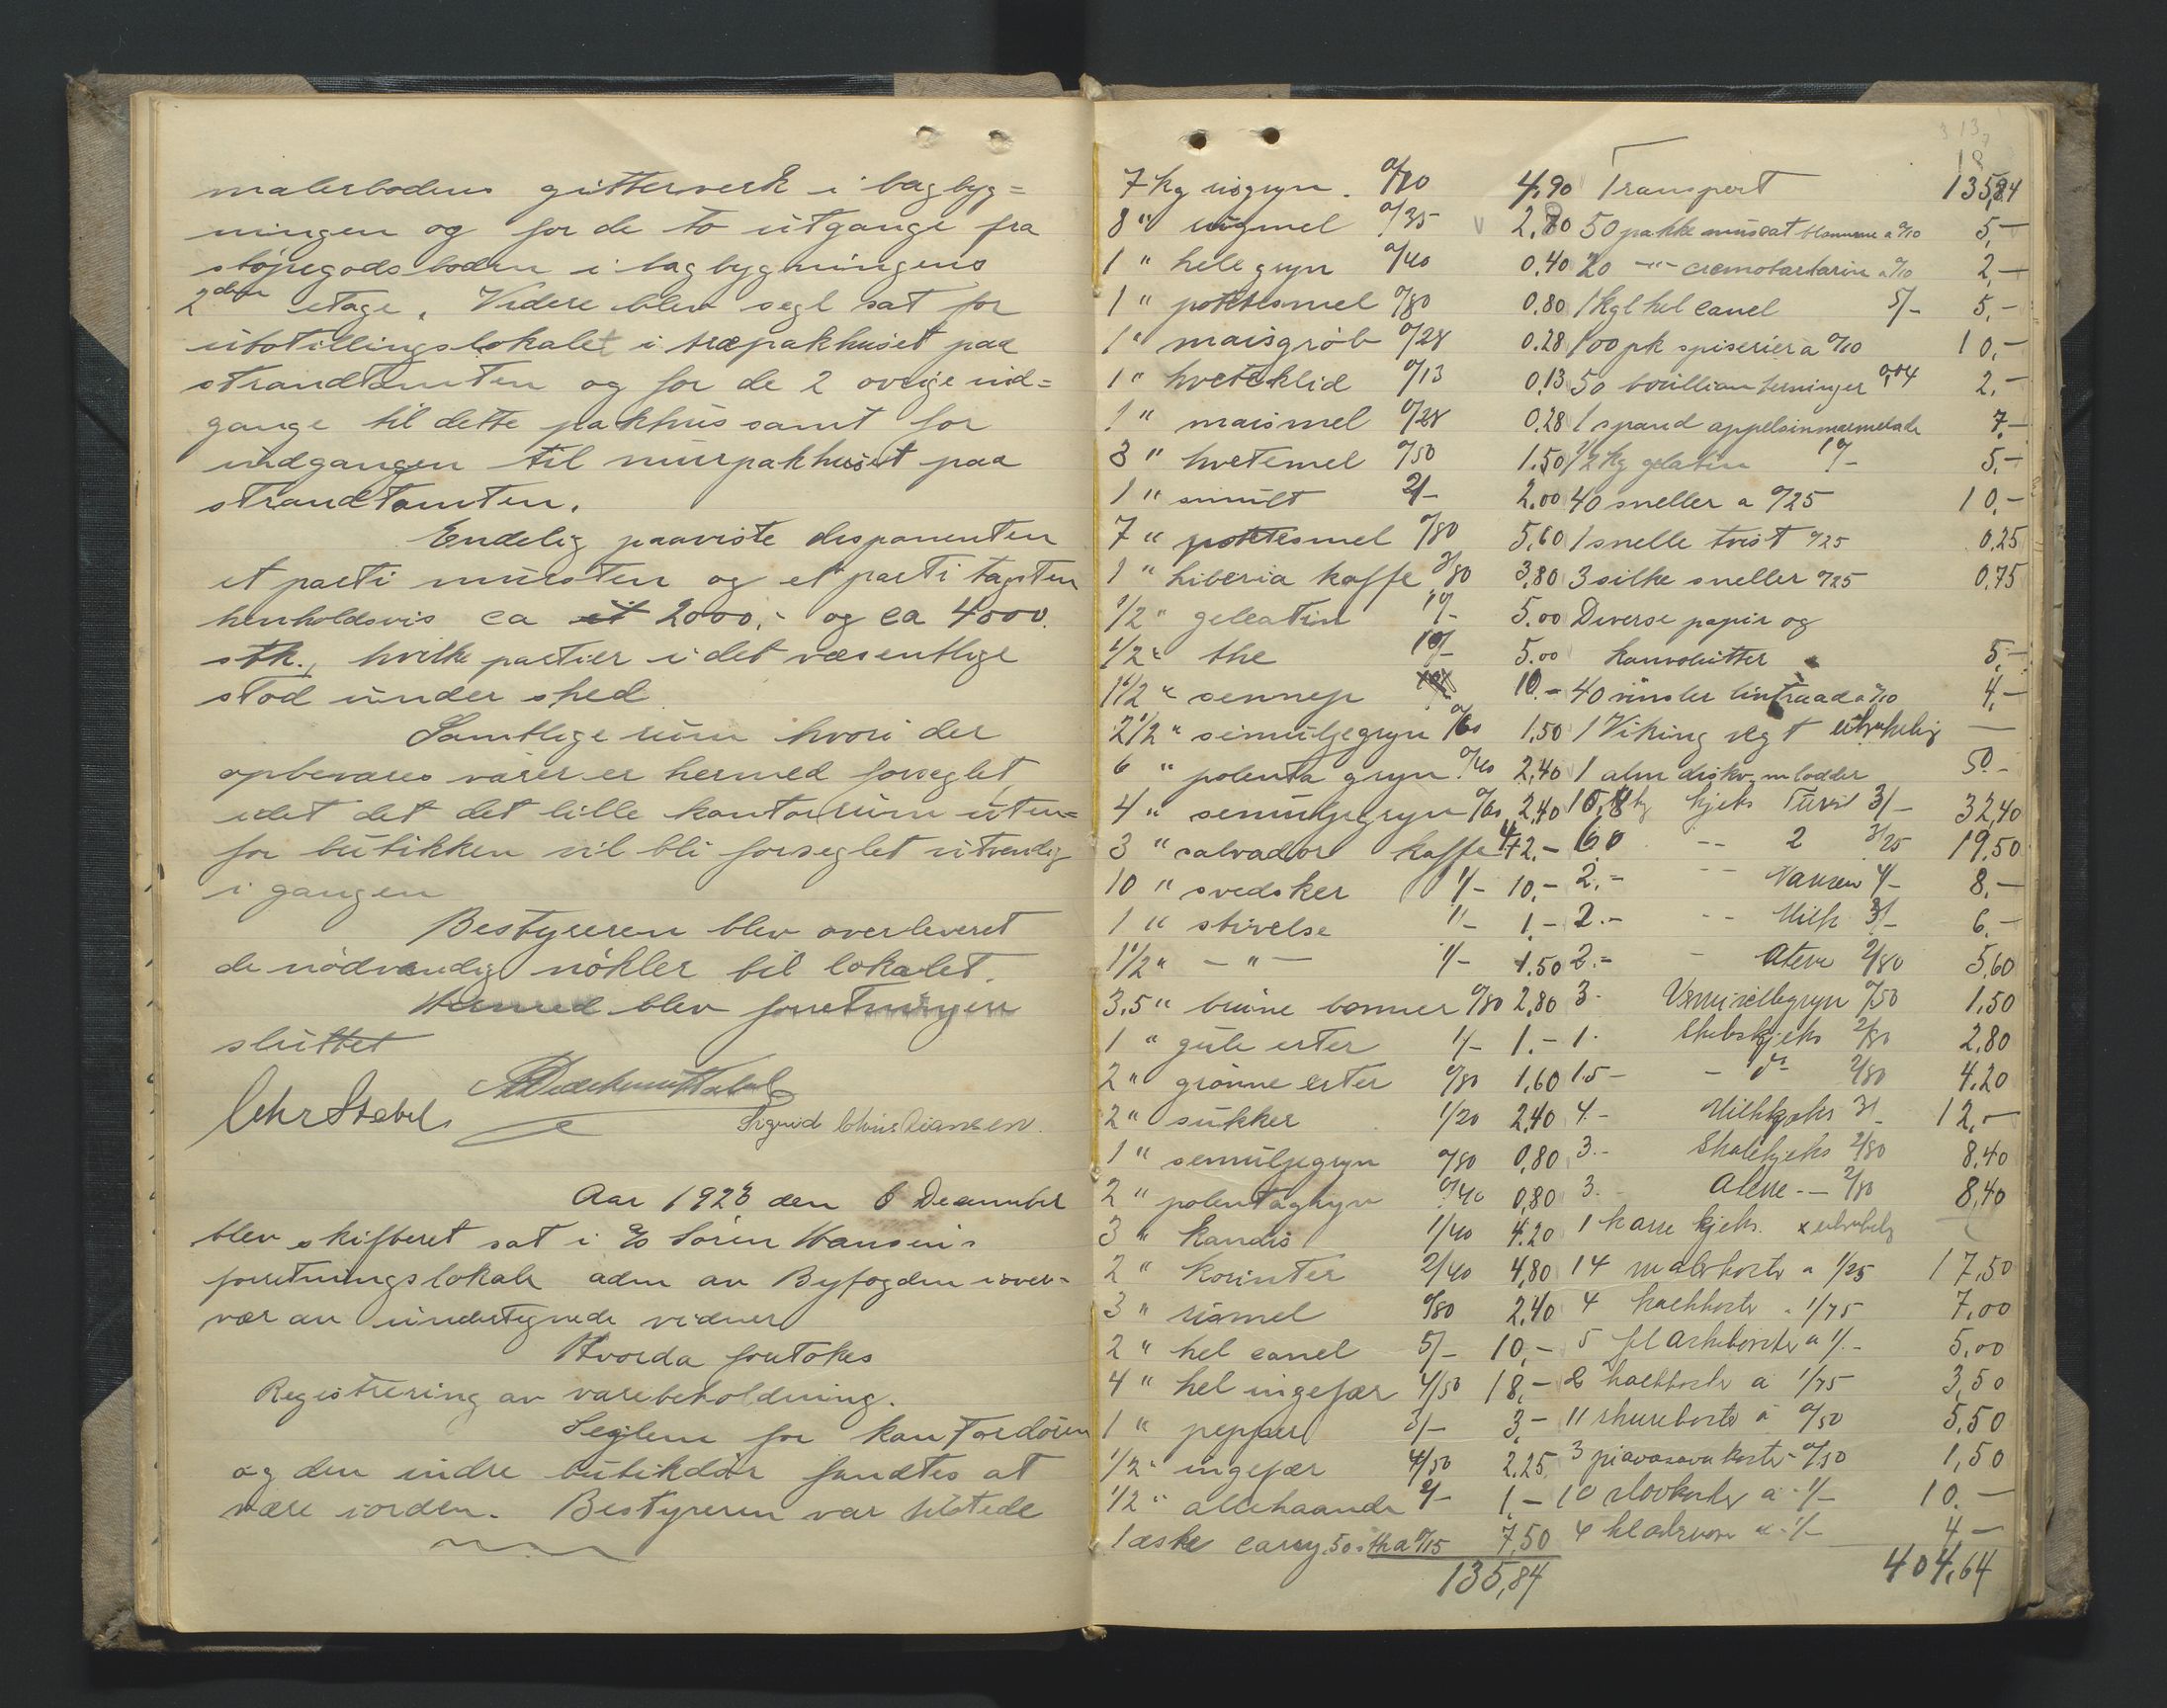 malerbodens gitterverk i bagbyg=
ningen og for de to utgange fra
støpegodsboden i bagbygningens
2den etage. Videre blev segl sat for
utstillingslokalet i træpakhuset paa
strandtomten og for de 2 øvrige ind=
gange til dette pakhus samt for
indgangen til murpakhuset paa
strandtomten.
Endelig paaviste disponenten
et parti mursten og et parti tagsten
henholdsvis ca 2000,- og ca 4000
stk., hvilke partier i det væsentlige
stod under shed
Samtlige rum hvori der
opbevares varer er hermed forseglet,
idet det det lille kontorrum uten=
for butikken vil bli forseglet utvendig
i gangen
Bestyreren blev overleveret
de nødvendig nøkler til lokalet.
Hermed blev forretningen
sluttet
Chr Stabel
Sigurd Christiansen.
Aar 1923 den 6 December
blev skifteret sat i Søren Hansens
forretningslokale adm av Byfogden i over-
vær av undertegnede vidner
Hvorda foretokes
Registrering av varebeholdning.
Seglene for kontordøren
og den indre butikdør fandtes at
være iorden. Bestyreren var tilstede
18
7 kg risgryn 0/70 4,90 Transport 135,84
8 " rugmel 0/35 2,80 50 pakke muscat blomme a 0/10 5,-
1 " hele gryn 0/40 0,40 20 -"- cremotartarin a 0/10 2,-
1 " potetesmel 0/80 0,80 1 kgl hel canel 5/- 5,-
1 " maisgrøb 0/28 0.28 100 pk spiserier a 0/10 10,-
1 " hveteklid 0/13 0,13 50 bouillion terninger 0,04 2,-
1 " maismel 0/28 0.28 1 spand appelsinmarmelade 7,-
3 " hvetemel 0/50 1.50 1/2 kg gelatin 10/- 5,-
1 " smult 2/- 2,00 40 sneller a 0/25 10,-
7 " potetesmel 0/80 5,60 1 snelle tvist 0/25 0,25
1 " Liberia kaffe 3/80 3,80 3 silke sneller 0/25 0,75
1/2 " geleatin 10/- 5.00 Diverse papir og
1/2 " the 10/- 5.00 konvolutter 5,-
1 1/2 " sennep 10.- 40 vinsler lintraad a 0/10 4,-
2 1/2 " semuljegryn 0/60 1,50 1 Viking vegt ubrukelig -
6 " polenta gryn 0/40 2,40 1 alm diskv. m lodder 50.-
4 " semuljegryn 0/60 2,40 10,8 kg kjeks Turist 3/- 32,40
3 " salvador kaffe 4/- 12,- 6,0 -- 2 3/25 19,50
10 " svedsker 1/- 10,- 2.- -- Nansen 4/- 8,-
1 " stivelse 1/- 1.- 2.- -- Milk 3/- 6,-
1 1/2 " -"- 1/- 1.50 2.- - Atene 2/80 5,60
3,5 " brune bønner 0/80 2,80 3. Vermicellegryn 0/50 1,50
1 " gule erter 1/- 1.- 1. Skibskjeks 2/80 2,80
2 " grønne erter 0/80 1,60 1.5 - - do 2/80 4.20
2 " sukker 1/20 2,40 4.- Milkkjeks 3/- 12,-
1 " semuljegryn 0/80 0,80 3.- Skolekjeks 2/80 8,40
2 " polentagryn 0/40 0,80 3. Atene -- 2/80 8,40
3 " kandis 1/40 4.20 1 kasse kjeks. x ubrukelig
2 " korinter 2/40 4,80 14 malekoste a 1/25 17,50
3 " rismel 0/80 2,40 4 kalkkoste a 1/75 7,00
2 " hel canel 5/- 10,- 5 flaskebørster a 1/- 5,00
4 " hel ingefær 4/50 18,- 2 kalkkoste a 1/75 3,50
1 " pepper 3/- 3,- 11 skurekoste a 0/50 5,50
1/2 " ingefær 4/50 2.25 3 piavasava koste a 0/50 1,50
1/2 " allehaande 2/- 1,- 10 stovkoster a 1/- 10.-
1 æske carry 50 stk a 0/15 7,50 4 a 1/- 4-
135,84 404,64